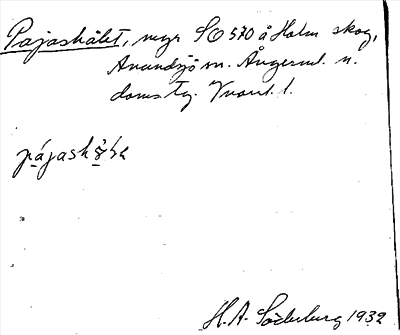 Pajashålet, myr SO 570 å Holm skog,
Anundsjö sn. Ångerml. n.
doms tg.
pájash
H.A. Söderberg 1932